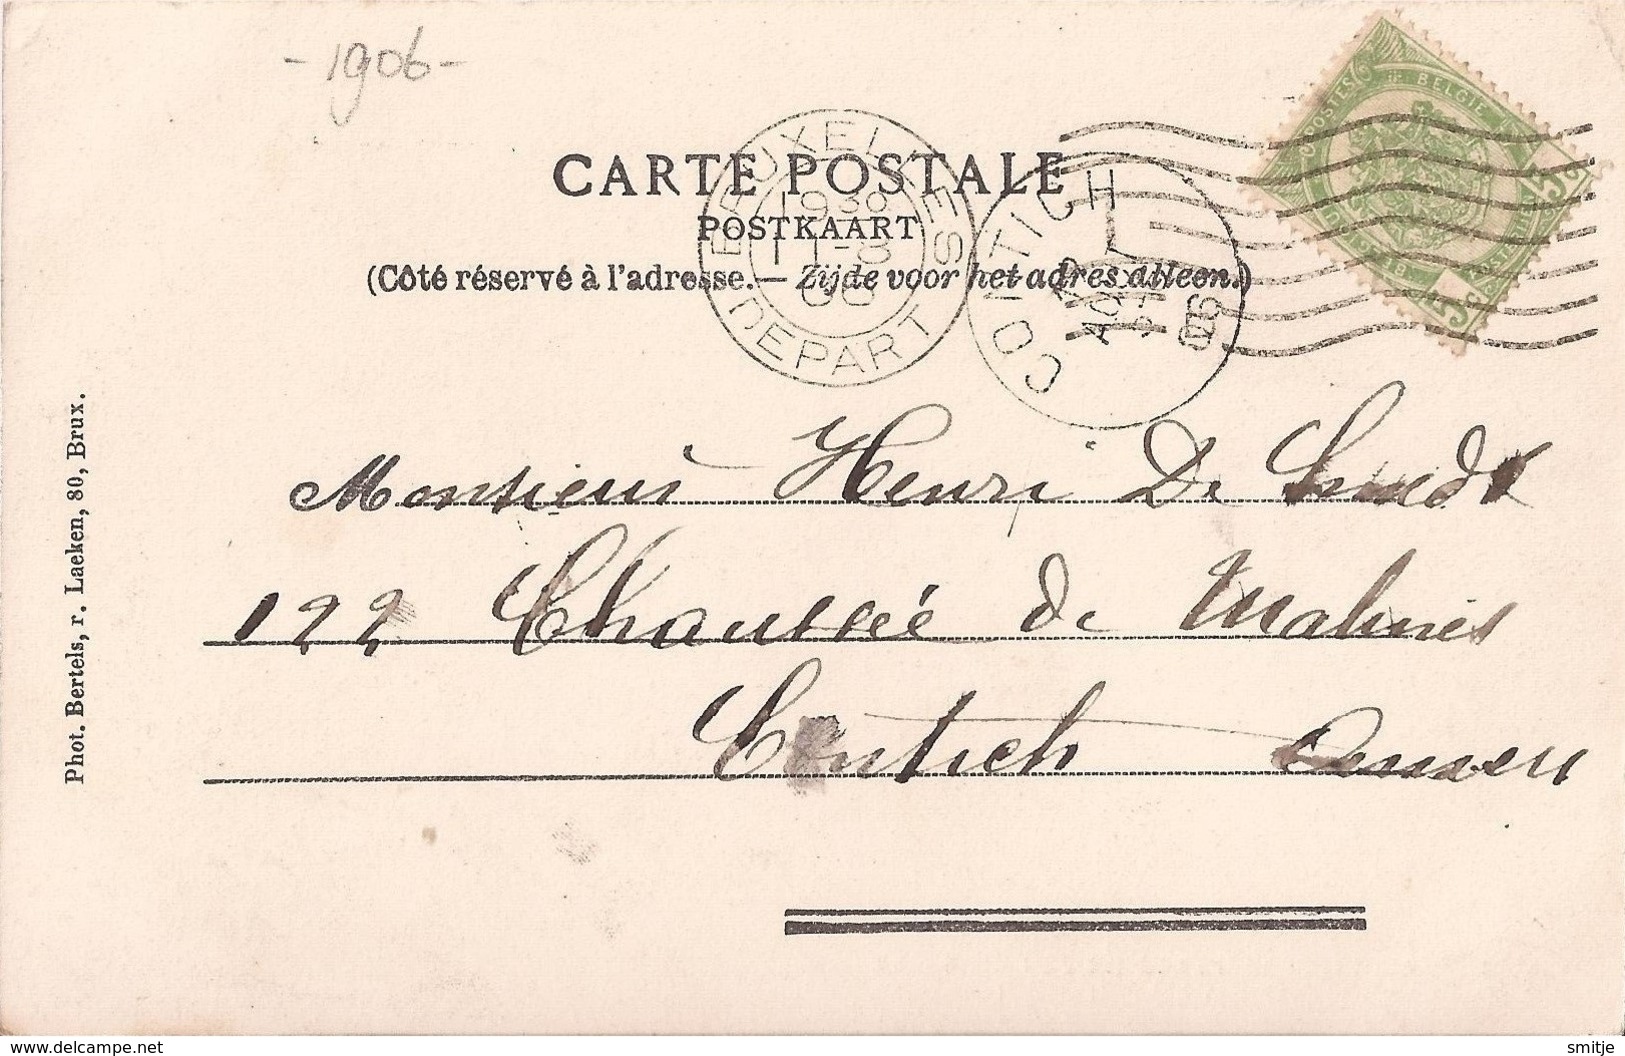 -1906-
BELGIE
POSTES
CARTE POSTALE
POSTKAART
(Côté réservé à l'adresse.— Zijde voor het adres alleen.)
BRUXELLES
DEPART
CONTICH
Monsieur Henri De Smedt
122 Chaussée de Malines
Contich Anvers
Phot. Bertels, r. Laeken, 80, Brux.
www.delcampe.net
smitje